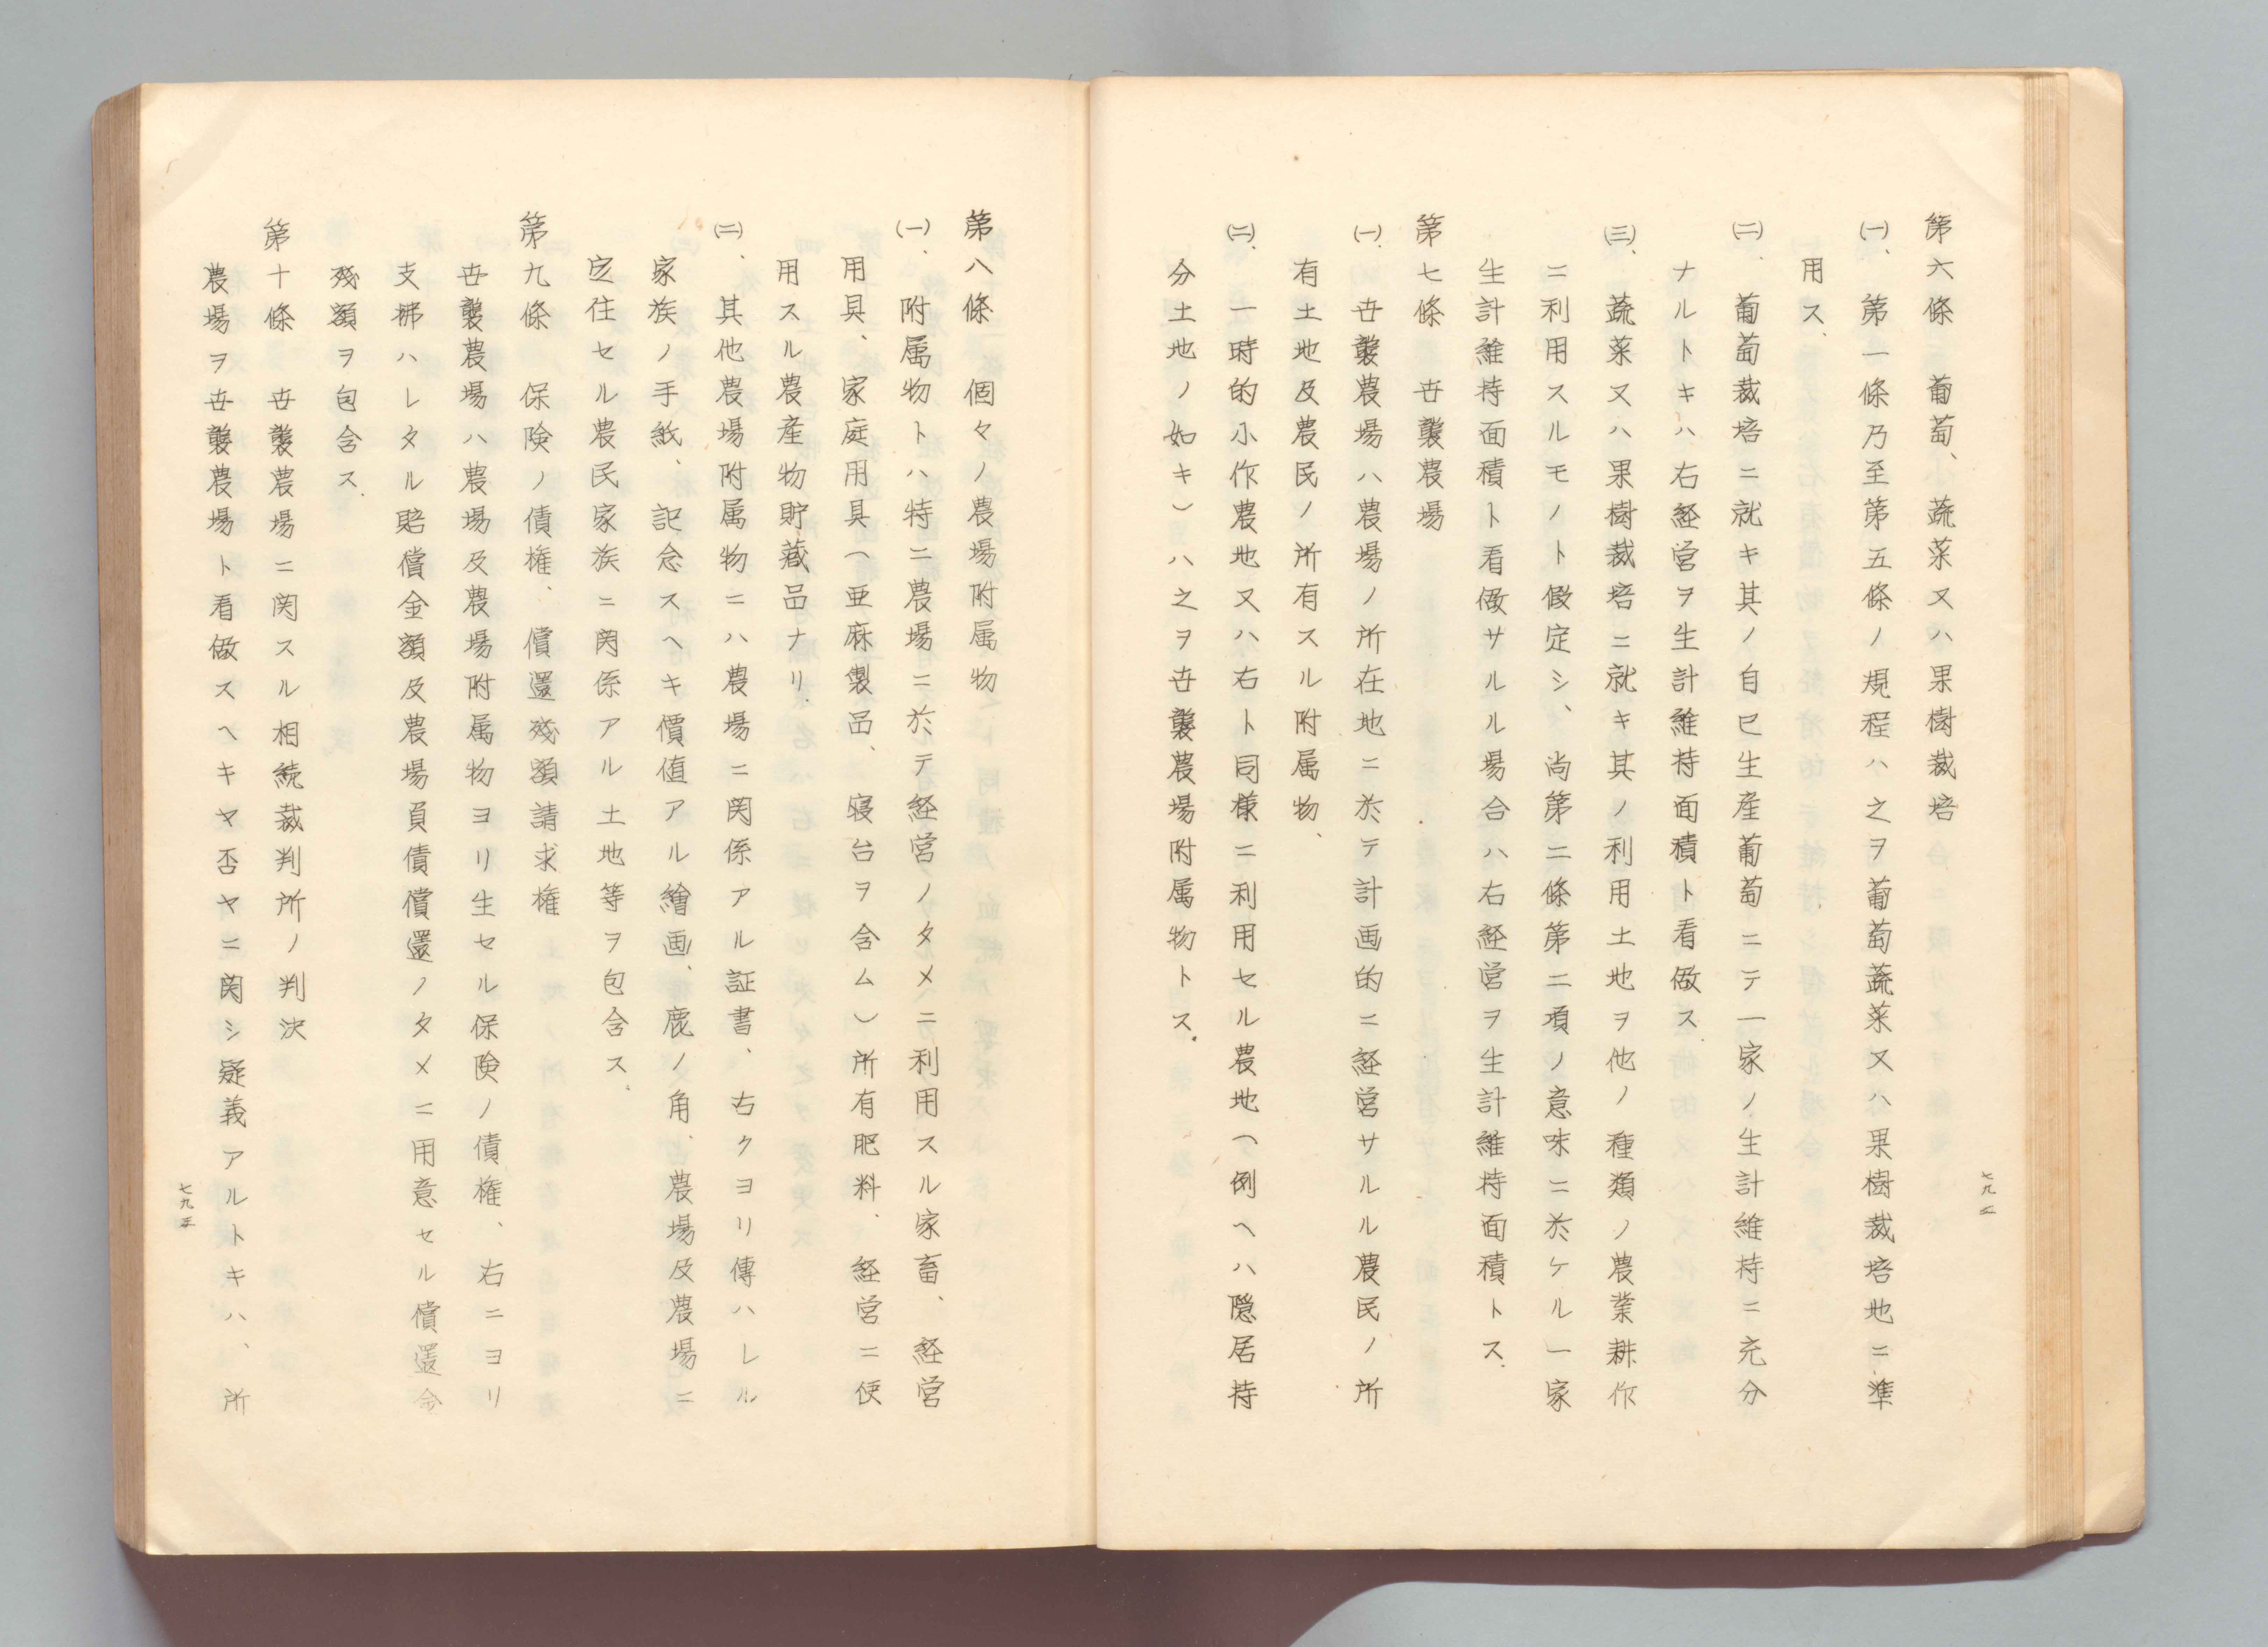 第六條　葡萄、蔬菜又ハ果樹裁培
㈠、第一條乃至第五條ノ規程ハ之ヲ葡萄蔬菜又ハ果樹裁培地ニ準
用ス、
㈡、葡萄裁培ニ就キ其ノ自已生産葡萄ニテ一家ノ生計維持ニ充分
ナルトキハ右経営ヲ生計維持面積ト看做ス
㈢、蔬菜又ハ果樹裁培ニ就キ其ノ利用土地ヲ他ノ種類ノ農業耕作
ニ利用スルモノト假定シ、尚第二條第二項ノ意味ニ於ケル一家
生計維持面積ト看做サルル場合ハ右経営ヲ生計維持面積トス、
第七條　世襲農場
㈠、世襲農場ハ農場ノ所在地ニ於テ計画的ニ経営サルル農民ノ所
有土地及農民ノ所有スル附属物、
㈡、一時的小作農地又ハ右ト同様ニ利用セル農地（例ヘハ隠居持
分土地ノ如キ）ハ之ヲ世襲農場附属物トス、
七九
第八條　個々ノ農場附属物
㈠、附属物トハ特ニ農場ニ於テ経営ノタメニ利用スル家畜、経営
用具、家庭用具（亜麻製品、寝台ヲ含ム）所有肥料、経営ニ使
用スル農産物貯藏品ナリ、
㈡、其他農場附属物ニハ農場ニ関係アル証書、古クヨリ傳ハレル
家族ノ手紙、記念スヘキ價値アル繪画、鹿ノ角、農場及農場ニ
定住セル農民家族ニ関係アル土地等ヲ包含ス、
第九條　保険ノ債権、償還残額請求権
世襲農場ハ農場及農場附属物ヨリ生セル保険ノ債権、右ニヨリ
支拂ハレタル賠償金額及農場負債償還ノタメニ用意セル償還金
残額ヲ包含ス、
第十條　世襲農場ニ関スル相続裁判所ノ判決
農場ヲ世襲農場ト看做スヘキヤ否ヤニ関シ疑義アルトキハ、所
七九三